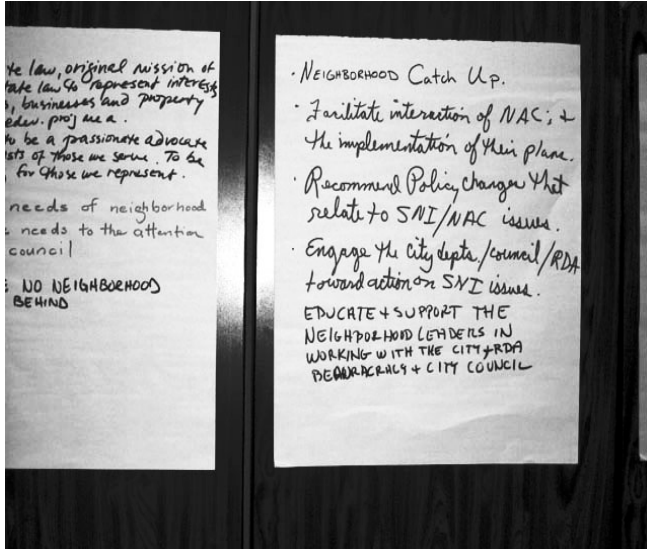 te law, original mission of
tate law to represent interests
, businesses and property
edev. proj me a.
to be a passionate advocate
sts of those we serve. To be
for those we represent.
needs of neighborhood
needs to the attention
council
NO NEIGHBORHOOD
BEHIND
· NEIGHBORHOOD Catch Up.
· Facilitate interaction of NAC; +
the implementation of their plans.
· Recommend Policy changes that
relate to SNI/NAC issues.
· Engage the City depts./council/RDA
toward action on SNI issues.
EDUCATE + SUPPORT THE
NEIGHBORHOOD LEADERS IN
WORKING WITH THE CITY + RDA
BEAURACRACY + CITY COUNCIL